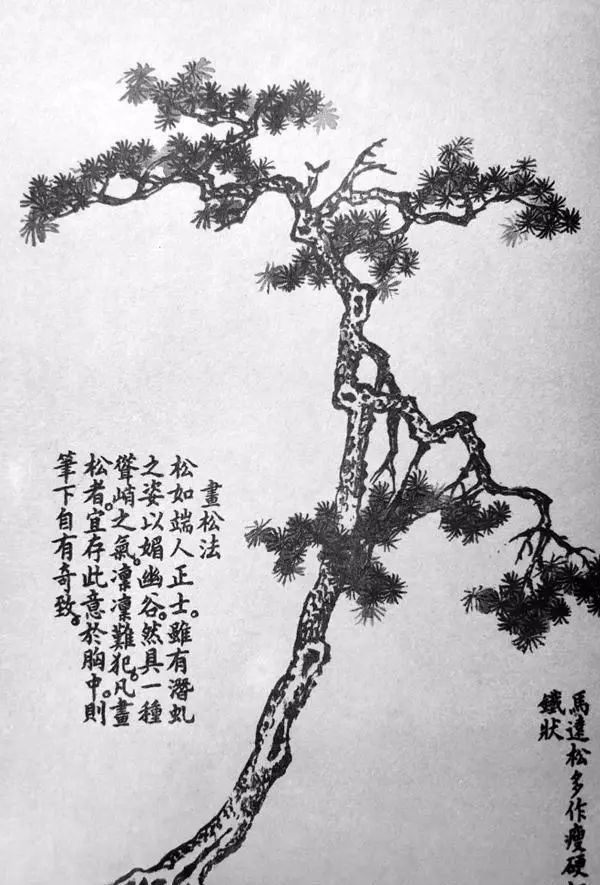 畫松法
松如端人正士。雖有潛虬
之姿以媚幽谷。然具一種
聳峭之氣。凜凜難犯。凡畫
松者。宜存此意於胸中。則
筆下自有奇致。
馬逵松多作瘦硬
鐵狀